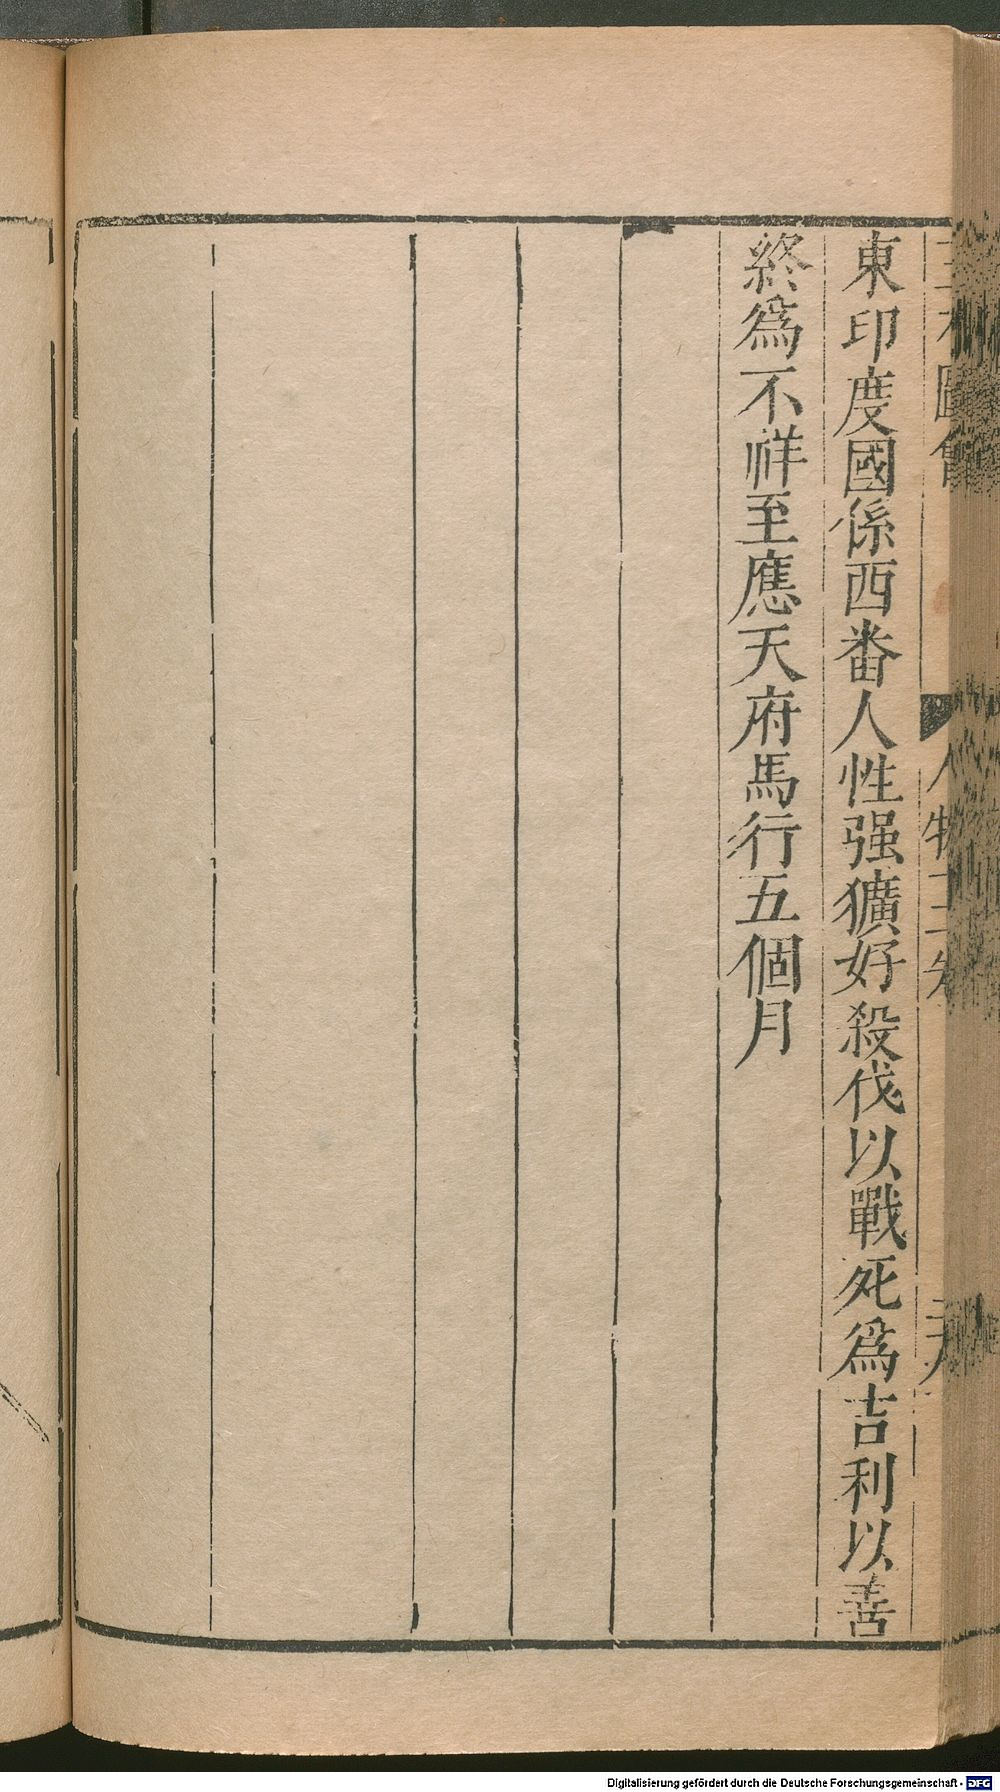 東印度國係西番人性强獷好殺伐以戰死爲吉利以善
終爲不祥至應天府馬行五個月
圖會
人物
Digitalisierung gefördert durch die Deutsche Forschungsgemeinschaft - DFG